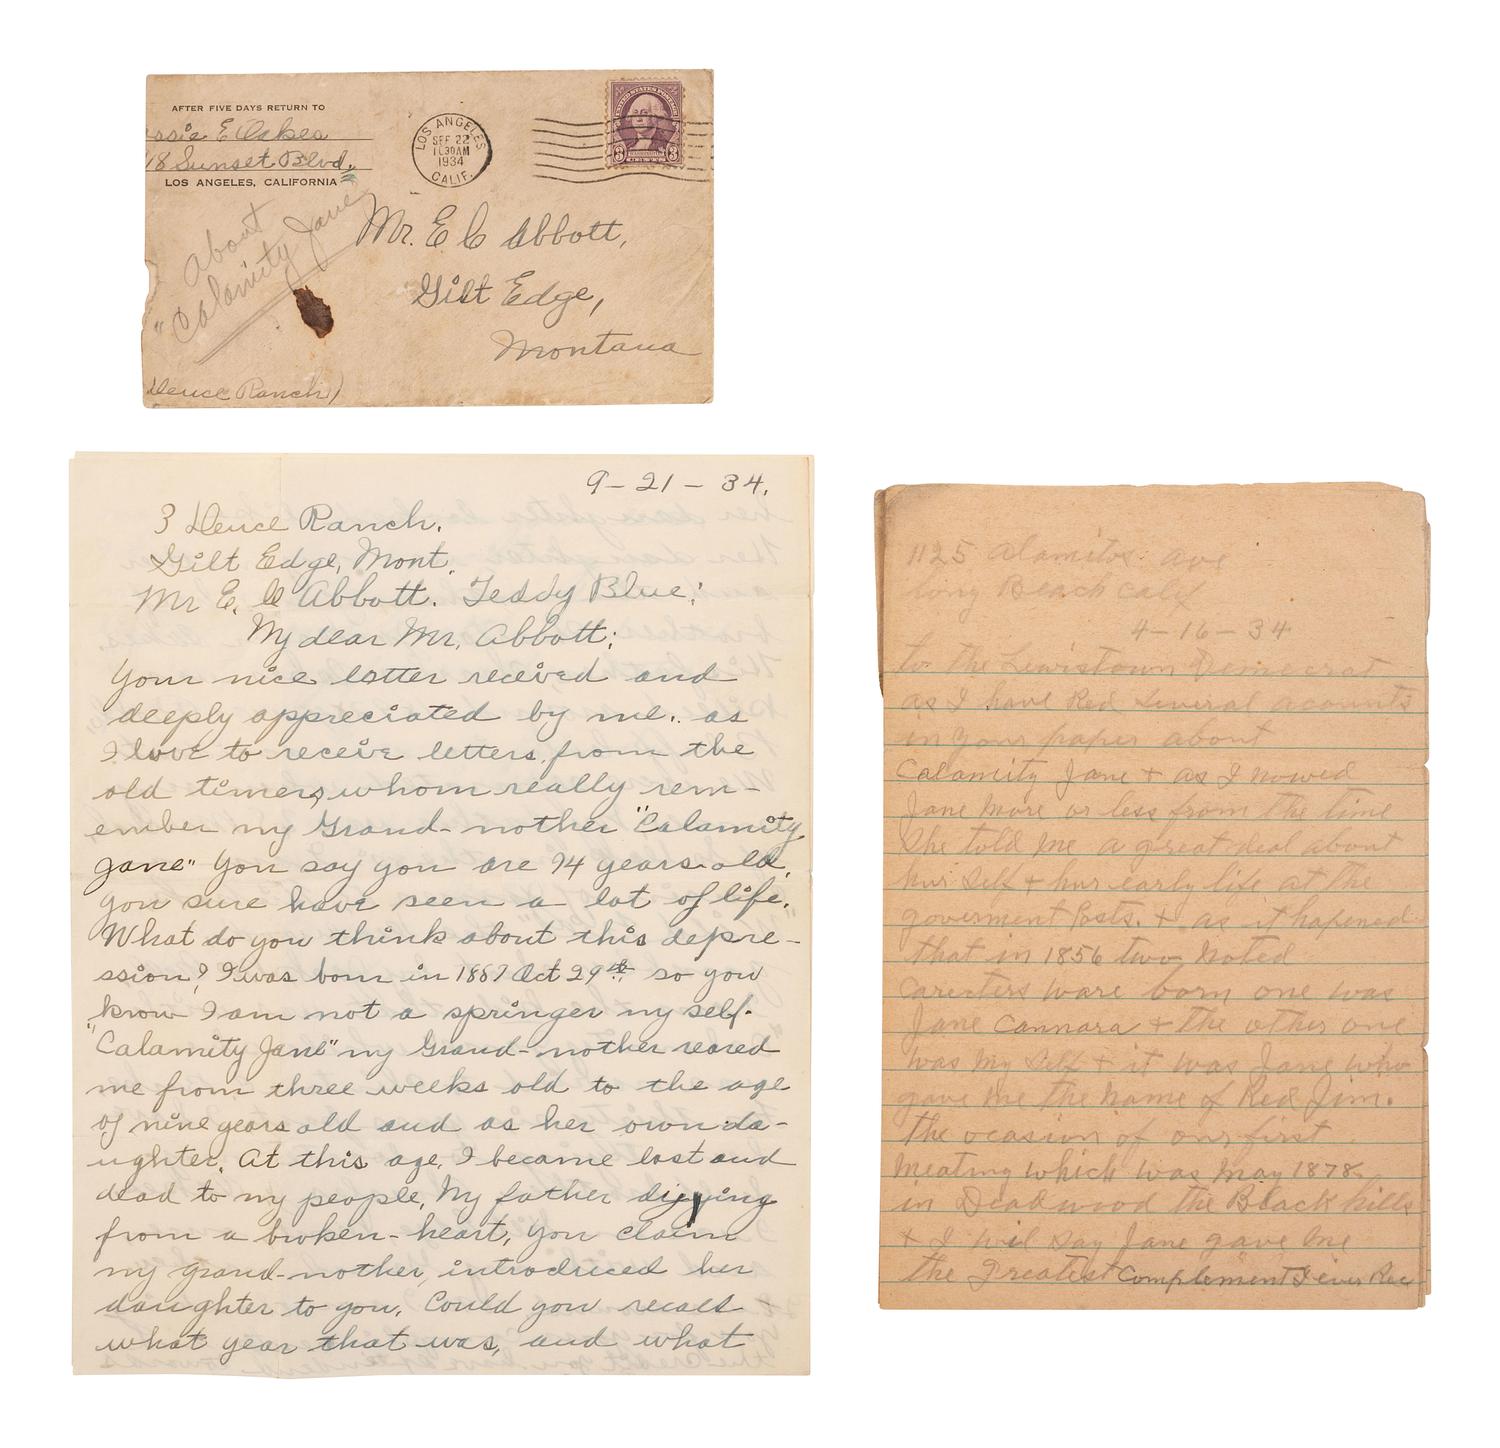 AFTER FIVE DAYS RETURN TO
ssie E Oakes
18 Sunset Blvd.
LOS ANGELES, CALIFORNIA
LOS ANGELES
SEP 22
1934
CALIF.
UNITED STATES POSTAGE
3 3
About
"Calamity Jane
Mr. E C Abbott,
Gilt Edge,
Montana
Deuce Ranch)
9-21-34.
3 Deuce Ranch.
Gilt Edge, Mont.
Mr E. C Abbott. Teddy Blue;
My dear Mr. Abbott:
Your nice letter received and
deeply appreciated by me. as
I love to receive letters from the
old timers, whom really rem-
ember my Grand-mother "Calamity
Jane" You say you are 74 years old,
you sure have seen a lot of life.
What do you think about this depre-
ssion? I was born in 1887 Oct 29th so you
know I am not a springer my self.
"Calamity Jane" my Grand-mother reared
me from three weeks old to the age
of nine years old and as her own da-
ughter. At this age, I became lost and
dead to my people, My father
from a broken-heart, you claim
my grand-mother, introduced her
daughter to you. Could you recall
what year that was, and what
1125 Alamitos ave
long Beach calif
4-16-34
to the Lewistown Democrat
as I have Red several acounts
in your paper about
Calamity Jane + as I nowed
Jane more or less from the time
She told me a great deal about
hur Self + hur early life at the
goverment Posts. + as it hapened
that in 1856 two noted
carecters ware born one was
Jane Cannara + the other one
was my Self + it was Jane who
gave me the name of Red Jim.
the ocasion of our first
meating which was may 1878
in Deadwood the Black hills
+ I will say Jane gave me
the Greatest Complement I ever Rec